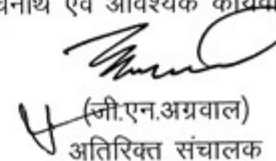 एवं आवश्यक
(जी.एन.अग्रवाल)
अतिरिक्त संचालक